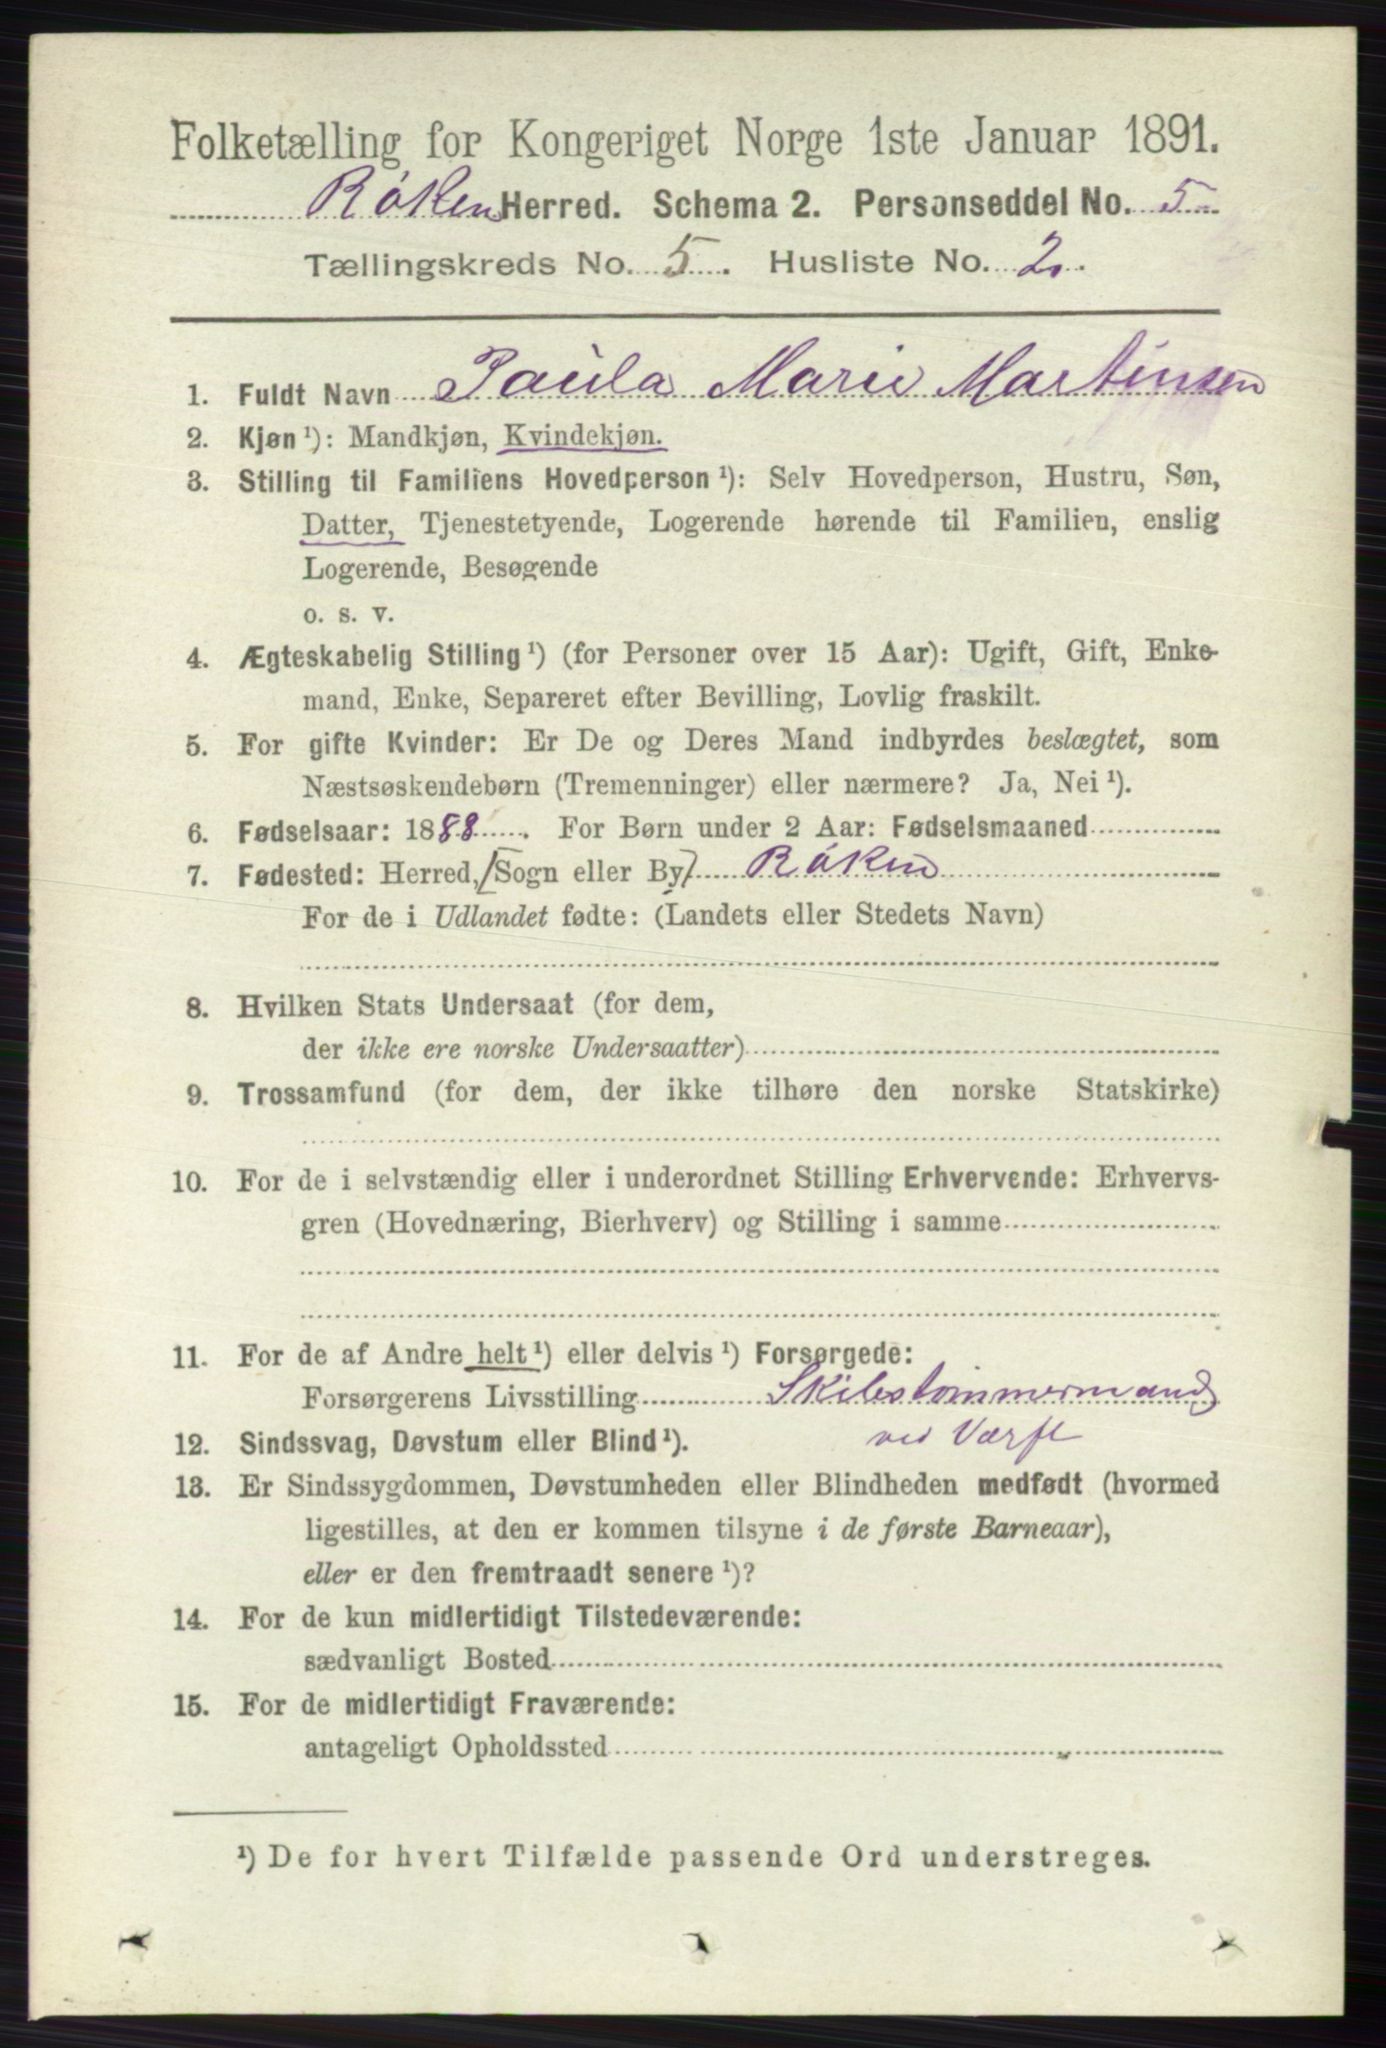 Folketælling for Kongeriget Norge 1ste Januar 1891.
Røken Herred. Schema 2. Personseddel No. 5
Tællingskreds No. 5. Husliste No. 2.
1. Fuldt Navn Paula Marie Martinsen
2. Kjøn ¹): Mandkjøn, Kvindekjøn.
3. Stilling til Familiens Hovedperson ¹): Selv Hovedperson, Hustru, Søn,
Datter, Tjenestetyende, Logerende hørende til Familien, enslig
Logerende, Besøgende
o. s. v.
4. Ægteskabelig Stilling ¹) (for Personer over 15 Aar): Ugift, Gift, Enke-
mand, Enke, Separeret efter Bevilling, Lovlig fraskilt.
5. For gifte Kvinder: Er De og Deres Mand indbyrdes beslægtet, som
Næstsøskendebørn (Tremenninger) eller nærmere? Ja, Nei ¹).
6. Fødselsaar: 1888. For Børn under 2 Aar: Fødselsmaaned
7. Fødested: Herred, [Sogn eller By] Røken
For de i Udlandet fødte: (Landets eller Stedets Navn)
8. Hvilken Stats Undersaat (for dem,
der ikke ere norske Undersaatter)
9. Trossamfund (for dem, der ikke tilhøre den norske Statskirke)
10. For de i selvstændig eller i underordnet Stilling Erhvervende: Erhvervs-
gren (Hovednæring, Bierhverv) og Stilling i samme
11. For de af Andre helt ¹) eller delvis ¹) Forsørgede:
Forsørgerens Livsstilling Skibstømmermand
ved Værft
12. Sindssvag, Døvstum eller Blind ¹).
13. Er Sindssygdommen, Døvstumheden eller Blindheden medfødt (hvormed
ligestilles, at den er kommen tilsyne i de første Barneaar),
eller er den fremtraadt senere ¹)?
14. For de kun midlertidigt Tilstedeværende:
sædvanligt Bosted
15. For de midlertidigt Fraværende:
antageligt Opholdssted
¹) De for hvert Tilfælde passende Ord understreges.